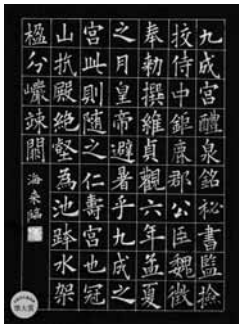 九成宮醴泉銘祕書監撿
挍侍中鉅鹿郡公臣魏徵
奉勅撰維貞觀六年孟夏
之月皇帝避暑乎九成之
宮此則隨之仁壽宮也冠
山抗殿絕壑為池跨水架
楹分巖竦闕